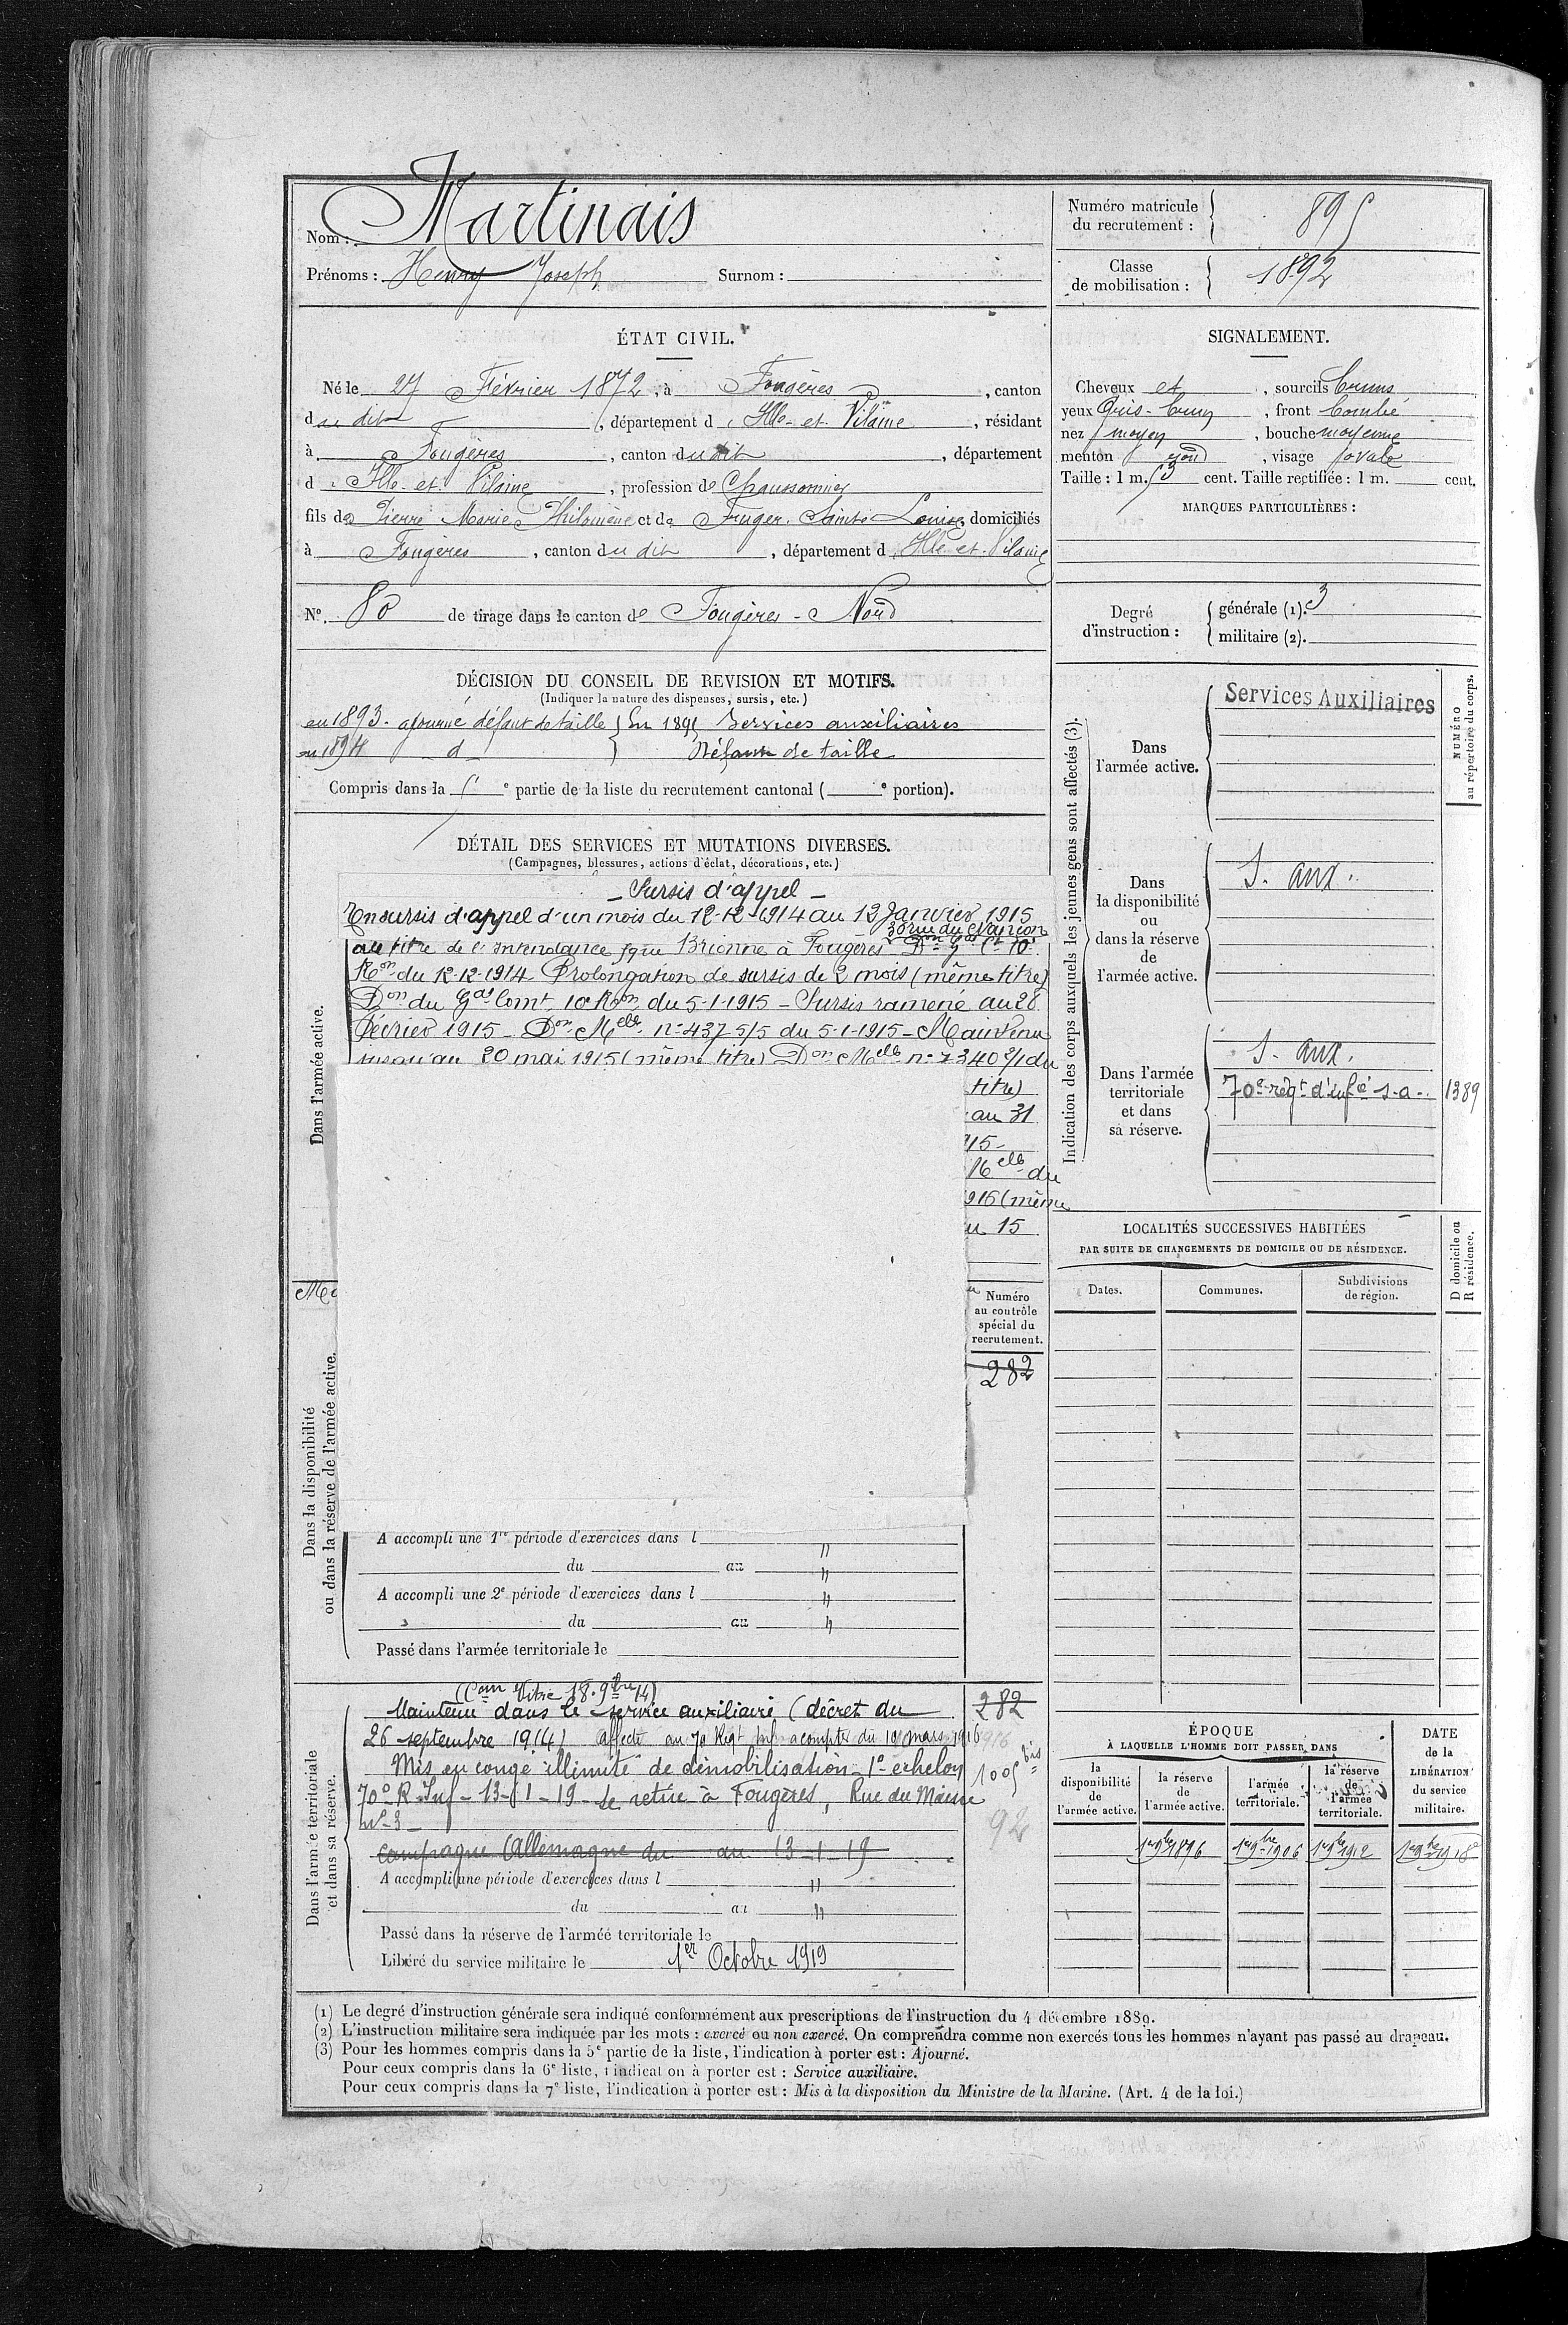 Nom : Martinais
Prénoms : Henry Joseph Surnom :
Numéro matricule
du recrutement : 895
Classe
de mobilisation : 1892
ÉTAT CIVIL.
Né le 27 Février 1872, à Fougères, canton
du dit, département d'Ille-et-Vilaine, résidant
à Fougères, canton du dit, département
d'Ille-et-Vilaine, profession de Chaussonnier
fils de Pierre Marie Philomène et de Fouger Sainte Louise, domiciliés
à Fougères, canton du dit, département d'Ille et Vilaine
N° 80 de tirage dans le canton de Fougères-Nord
SIGNALEMENT.
Cheveux et, sourcils bruns
yeux Gris-brun, front bombé
nez moyen, bouche moyenne
menton rond, visage ovale
Taille : 1 m. 53 cent. Taille rectifiée : 1 m. cent.
MARQUES PARTICULIÈRES :
Degré
d'instruction :
générale (1). 3
militaire (2).
DÉCISION DU CONSEIL DE REVISION ET MOTIFS.
(Indiquer la nature des dispenses, sursis, etc.)
en 1893. ajourné défaut de taille } En 1895 Services auxiliaires
en 1894 d } Défaut de taille
Compris dans la 6e partie de la liste du recrutement cantonal ( e portion).
DÉTAIL DES SERVICES ET MUTATIONS DIVERSES.
(Campagnes, blessures, actions d'éclat, décorations, etc.)
Dans l'armée active.
- Sursis d'appel -
En sursis d'appel d'un mois du 12-12-1914 au 12 Janvier 1915
30 rue du Nançon
au titre de l'intendance fque Brionne à Fougères Don Gal Ct 10e
Ron du 12-12-1914 Prolongation de sursis de 2 mois (même titre)
Don du Gal Comt 10e Ron du 5-1-1915 - Sursis ramené au 28
Février 1915 - Don Melle n° 437 5/5 du 5-1-1915 - Maintenu
jusqu'au 20 mai 1915 (même titre) Don Melle n° 7340 2/1 du
titre)
au 31
915-
Melle du
916 (même
u 15
Indication des corps auxquels les jeunes gens sont affectés (3).
NUMÉRO
au répertoire du corps.
Dans
l'armée active.
Services Auxiliaires
Dans
la disponibilité
ou
dans la réserve
de
l'armée active.
S. aux.
Dans l'armée
territoriale
et dans
sa réserve.
S. aux.
70e régt d'infie s.a. 1389
LOCALITÉS SUCCESSIVES HABITÉES
PAR SUITE DE CHANGEMENTS DE DOMICILE OU DE RÉSIDENCE.
Dates.
Communes.
Subdivisions
de région.
D domicile ou
R résidence.
Dans la disponibilité
ou dans la réserve de l'armée active.
Numéro
au contrôle
spécial du
recrutement.
282
A accompli une 1re période d'exercices dans l "
du au "
A accompli une 2e période d'exercices dans l "
du au "
Passé dans l'armée territoriale le
Dans l'armée territoriale
et dans sa réserve.
(Com Vitré 18.9bre 14)
Maintenu dans le service auxiliaire (décret du 282
26 septembre 1914) Affecté au 70 Régt Inf a compter du 19 mars 1916
Mis en congé illimité de démobilisation 1er echelon 1005 bis
70e R Inf - 13-1-19 - Se retire à Fougères, Rue du Maine
N° 3 - 92
campagne Allemagne du au 13-1-19
A accompli une période d'exercices dans l "
du au "
Passé dans la réserve de l'armée territoriale le
Libéré du service militaire le 1er Octobre 1919
ÉPOQUE
À LAQUELLE L'HOMME DOIT PASSER DANS
la
disponibilité
de
l'armée active.
la réserve
de
l'armée active.
l'armée
territoriale.
la réserve
de
l'armée
territoriale.
DATE
de la
LIBÉRATION
du service
militaire.
1er 9bre 1896
1er 9bre 1906
1er 9bre 1912
1er 9bre 1918
(1) Le degré d'instruction générale sera indiqué conformément aux prescriptions de l'instruction du 4 décembre 1889.
(2) L'instruction militaire sera indiquée par les mots : exercé ou non exercé. On comprendra comme non exercés tous les hommes n'ayant pas passé au drapeau.
(3) Pour les hommes compris dans la 5e partie de la liste, l'indication à porter est : Ajourné.
Pour ceux compris dans la 6e liste, l'indication à porter est : Service auxiliaire.
Pour ceux compris dans la 7e liste, l'indication à porter est : Mis à la disposition du Ministre de la Marine. (Art. 4 de la loi.)